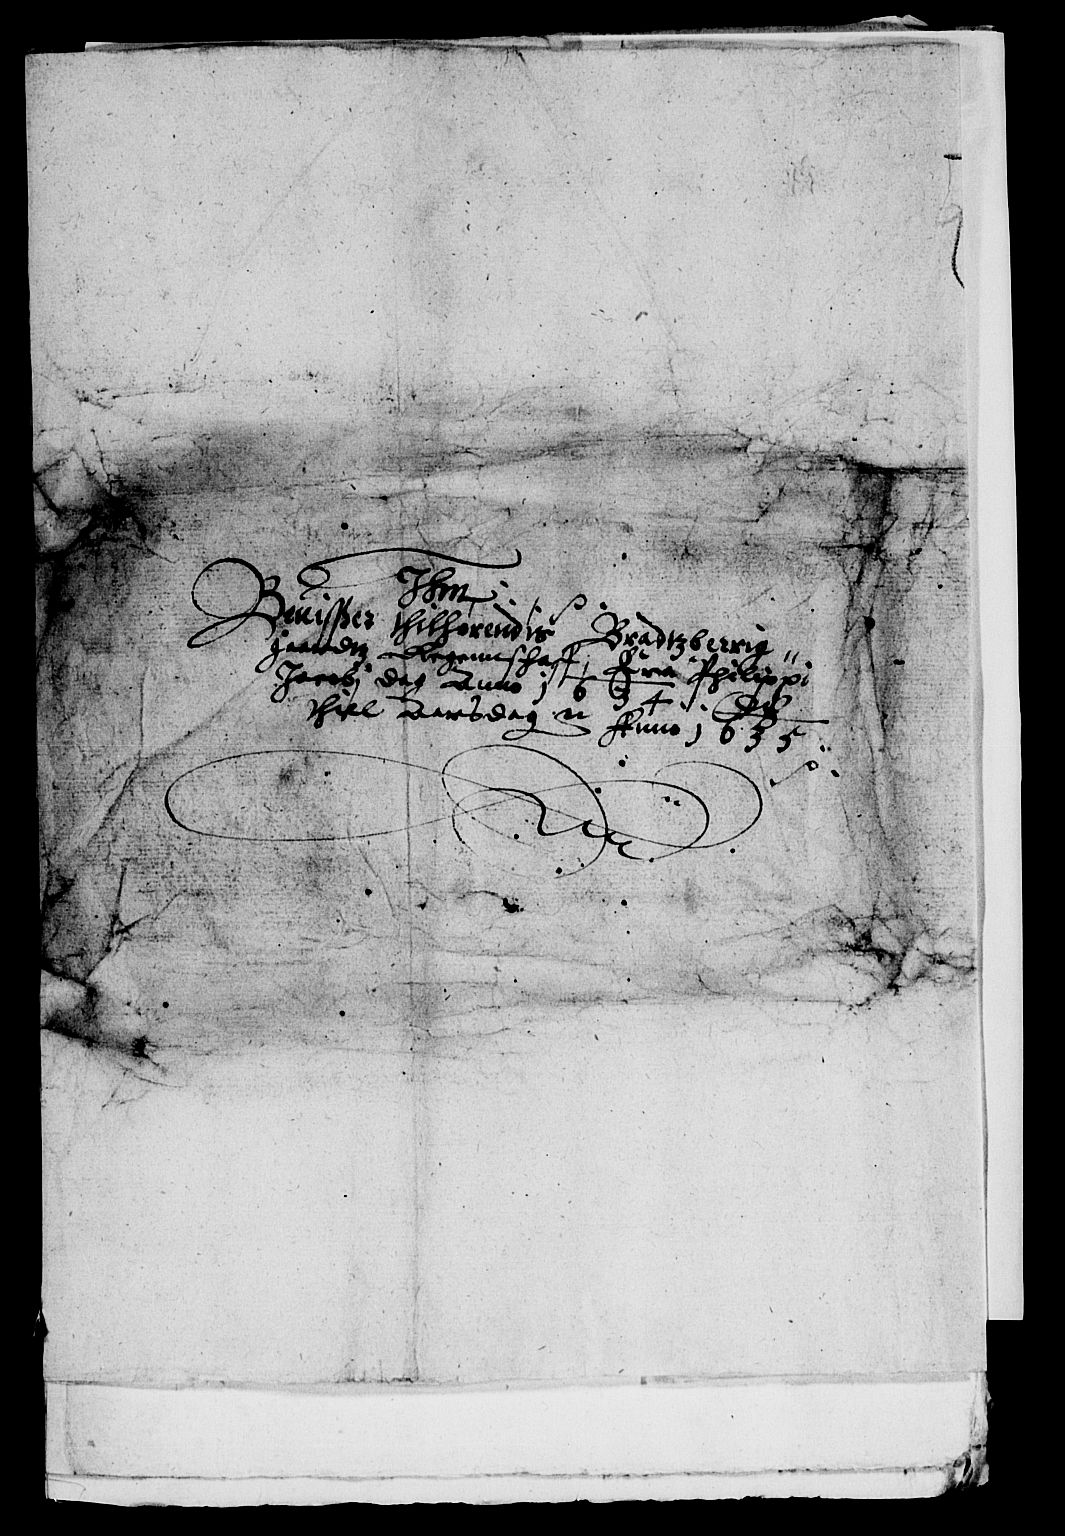 Ihm
Beuisser thilhørendis Bradtzberrig
Regennschaff, Fra Philippi
Jacobj dag Anno 1634 Och
thil Aarsdag n Anno 1635